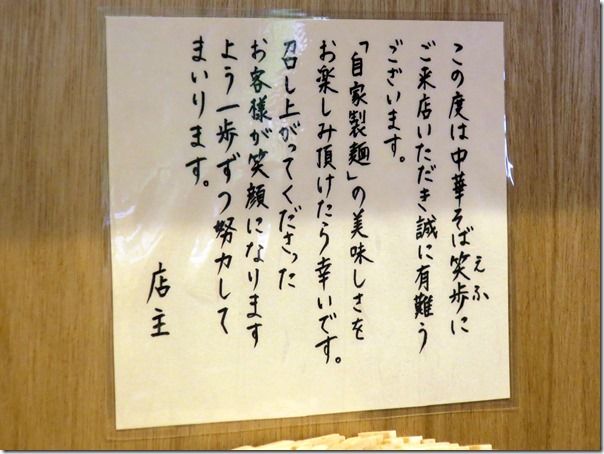 この度は中華そば笑歩に
えふ
ご来店いただき誠に有難う
ございます。
「自家製麺」の美味しさを
お楽しみ頂けたら幸いです。
召し上がってくださった
お客様が笑顔になります
よう一歩ずつ努力して
まいります。
店主